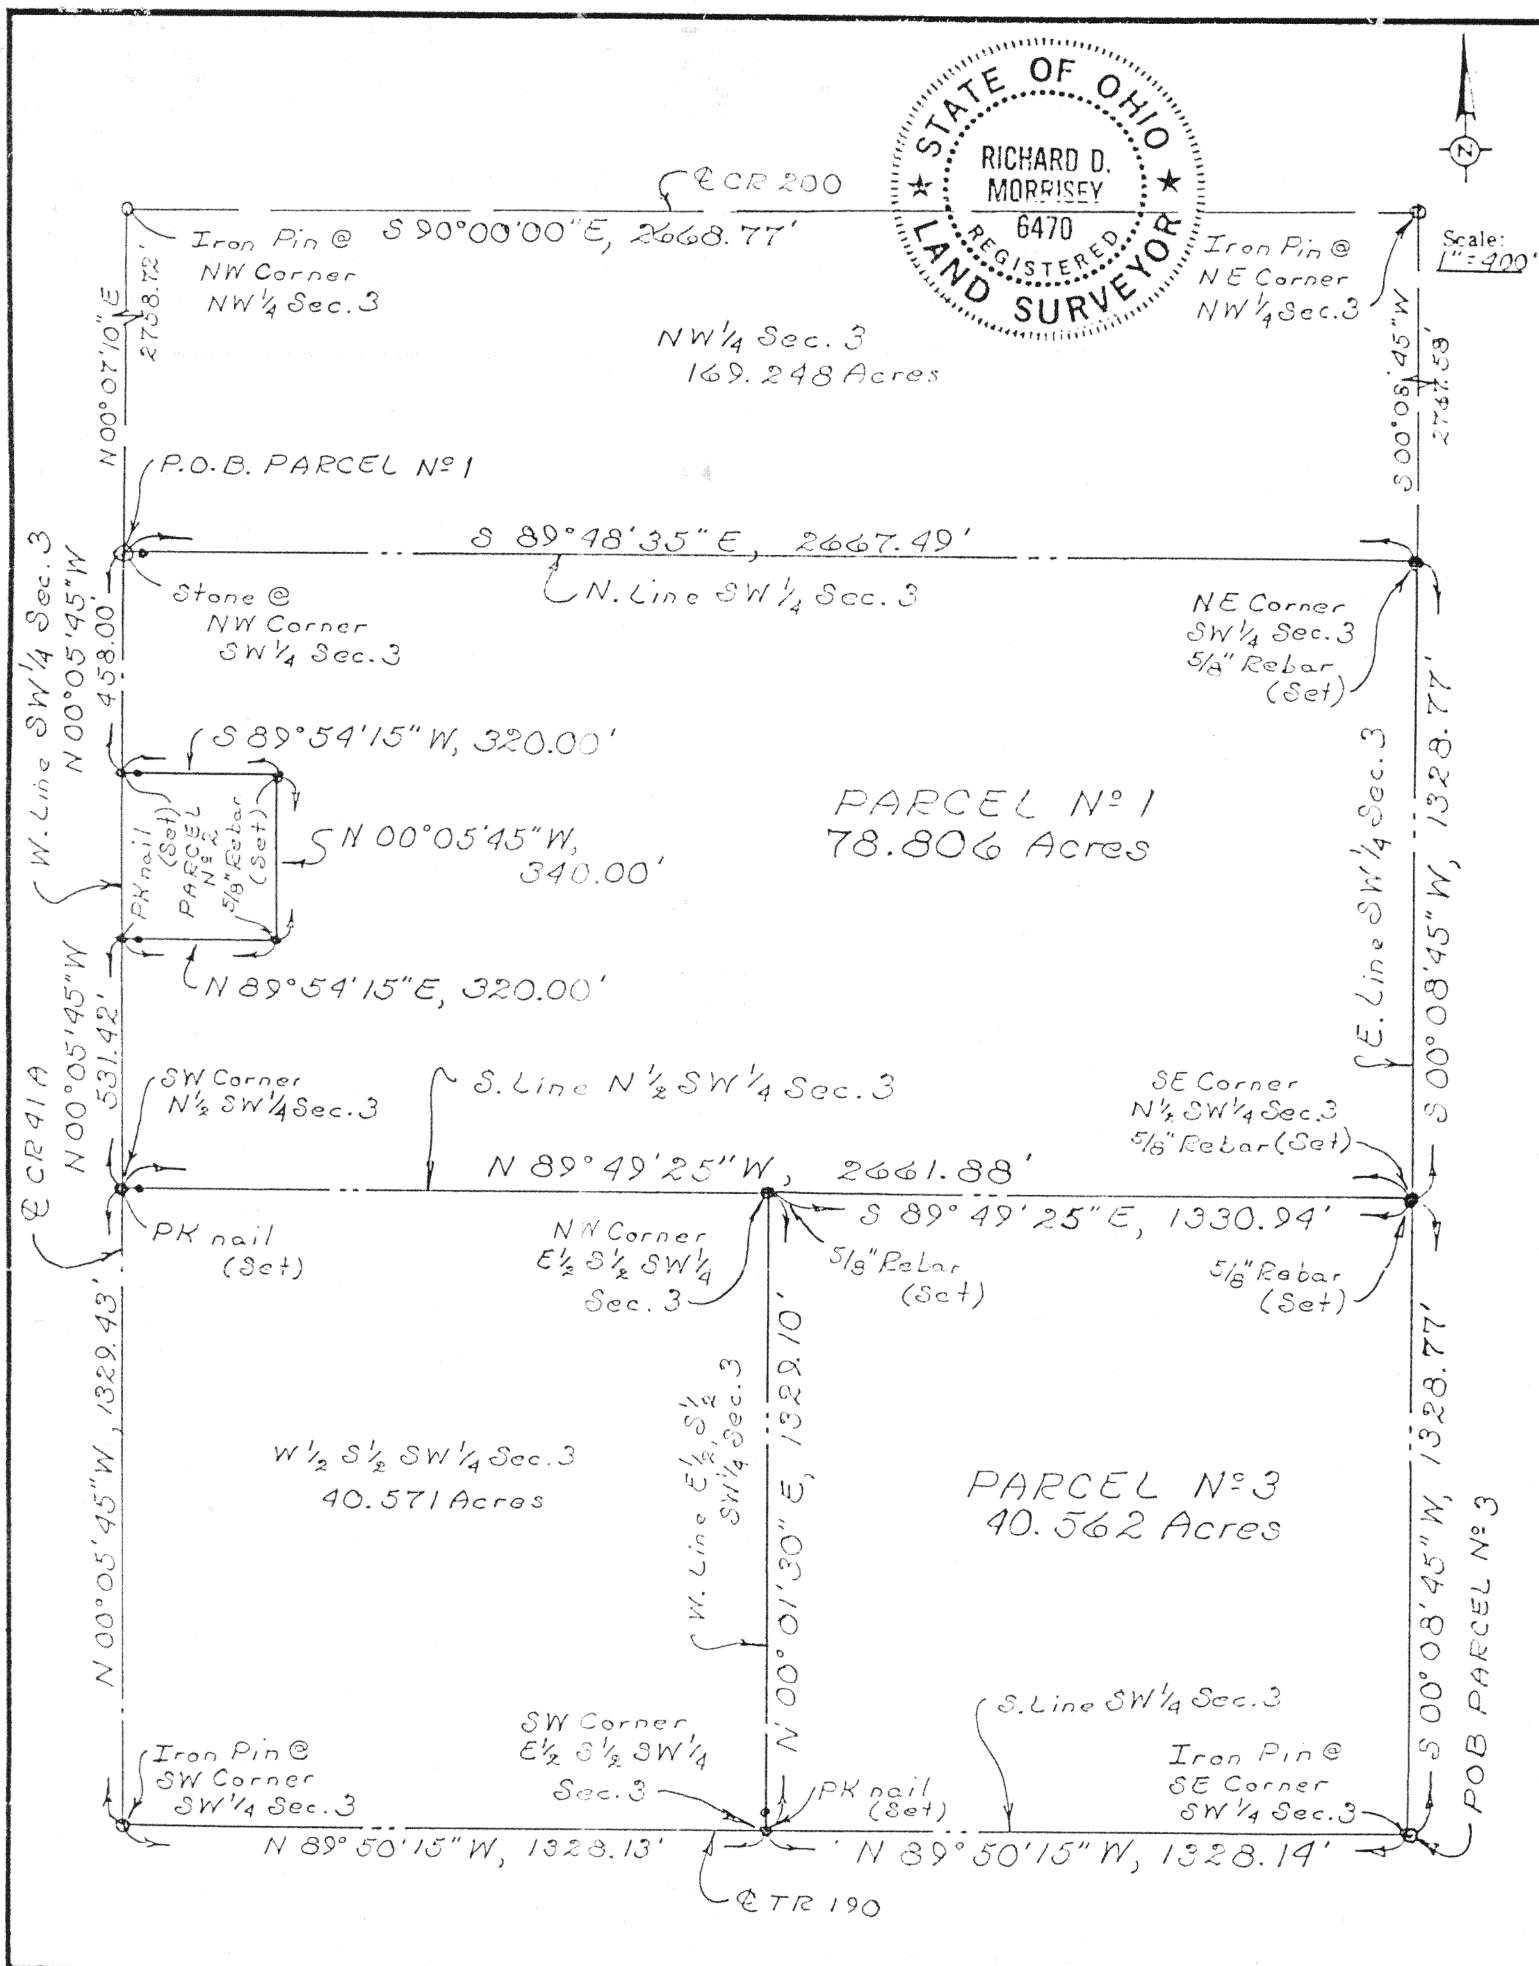 STATE OF OHIO
RICHARD D.
MORRISEY
6470
REGISTERED
LAND SURVEYOR
Z
Scale:
1"=400'
℄ CR 200
S 90°00'00"E, 2668.77'
Iron Pin @
NW Corner
NW 1/4 Sec. 3
Iron Pin @
NE Corner
NW 1/4 Sec. 3
N 00°07'10" E
2758.72'
NW 1/4 Sec. 3
169.248 Acres
S 00°08'45" W
2767.59'
P.O.B. PARCEL Nº 1
S 89°48'35" E, 2667.49'
N. Line SW 1/4 Sec. 3
Stone @
NW Corner
SW 1/4 Sec. 3
NE Corner
SW 1/4 Sec. 3
5/8" Rebar
(Set)
W. Line SW 1/4 Sec. 3
N 00°05'45" W
458.00'
S 89°54'15" W, 320.00'
PK nail
(Set)
PARCEL
Nº 2
5/8" Rebar
(Set)
N 00°05'45" W,
340.00'
N 89°54'15" E, 320.00'
PARCEL Nº 1
78.806 Acres
E. Line SW 1/4 Sec. 3
S 00°08'45" W, 1328.77'
℄ CR 41 A
N 00°05'45" W
531.42'
SW Corner
N 1/2 SW 1/4 Sec. 3
S. Line N 1/2 SW 1/4 Sec. 3
SE Corner
N 1/2 SW 1/4 Sec. 3
5/8" Rebar (Set)
N 89°49'25" W, 2661.88'
S 89°49'25" E, 1330.94'
PK nail
(Set)
NW Corner
E 1/2 S 1/2 SW 1/4
Sec. 3
5/8" Rebar
(Set)
5/8" Rebar
(Set)
N 00°05'45" W, 1329.43'
W 1/2 S 1/2 SW 1/4 Sec. 3
40.571 Acres
W. Line E 1/2, S 1/2
SW 1/4 Sec. 3
N 00°01'30" E, 1329.10'
PARCEL Nº 3
40.562 Acres
S 00°08'45" W, 1328.77'
POB PARCEL Nº 3
Iron Pin @
SW Corner
SW 1/4 Sec. 3
SW Corner
E 1/2 S 1/2 SW 1/4
Sec. 3
PK nail
(Set)
S. Line SW 1/4 Sec. 3
Iron Pin @
SE Corner
SW 1/4 Sec. 3
N 89°50'15" W, 1328.13'
N 89°50'15" W, 1328.14'
℄ TR 190